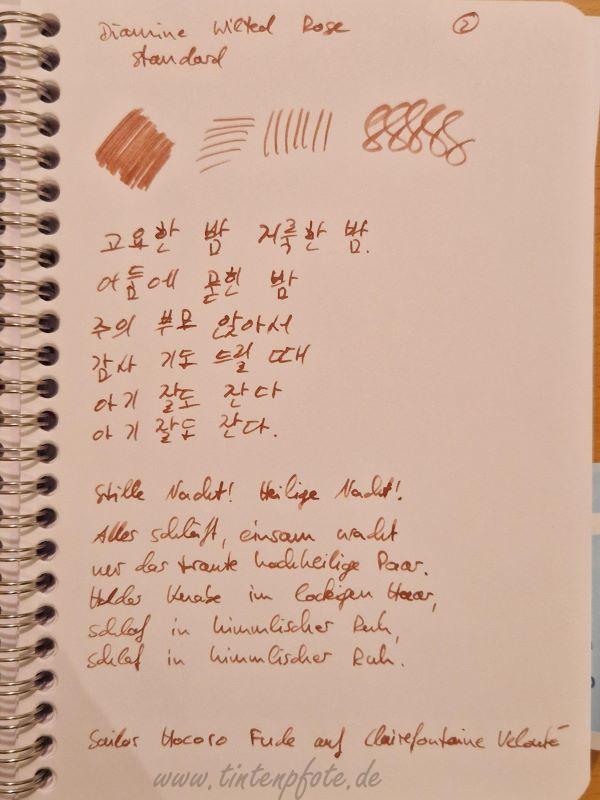 Diamine Wilted Rose
Standard
2
고요한 밤 거룩한 밤.
어둠에 묻힌 밤
주의 부모 앉아서
감사 기도 드릴 때
아기 잘도 잔다
아기 잘도 잔다.
Stille Nacht! Heilige Nacht!
Alles schläft, einsam wacht
nur das traute hochheilige Paar.
Holder Knabe im lockigen Haar,
schlaf in himmlischer Ruh,
schlaf in himmlischer Ruh.
Sailor Hocoro Fude auf Clairefontaine Velouté
www.tintenpfote.de